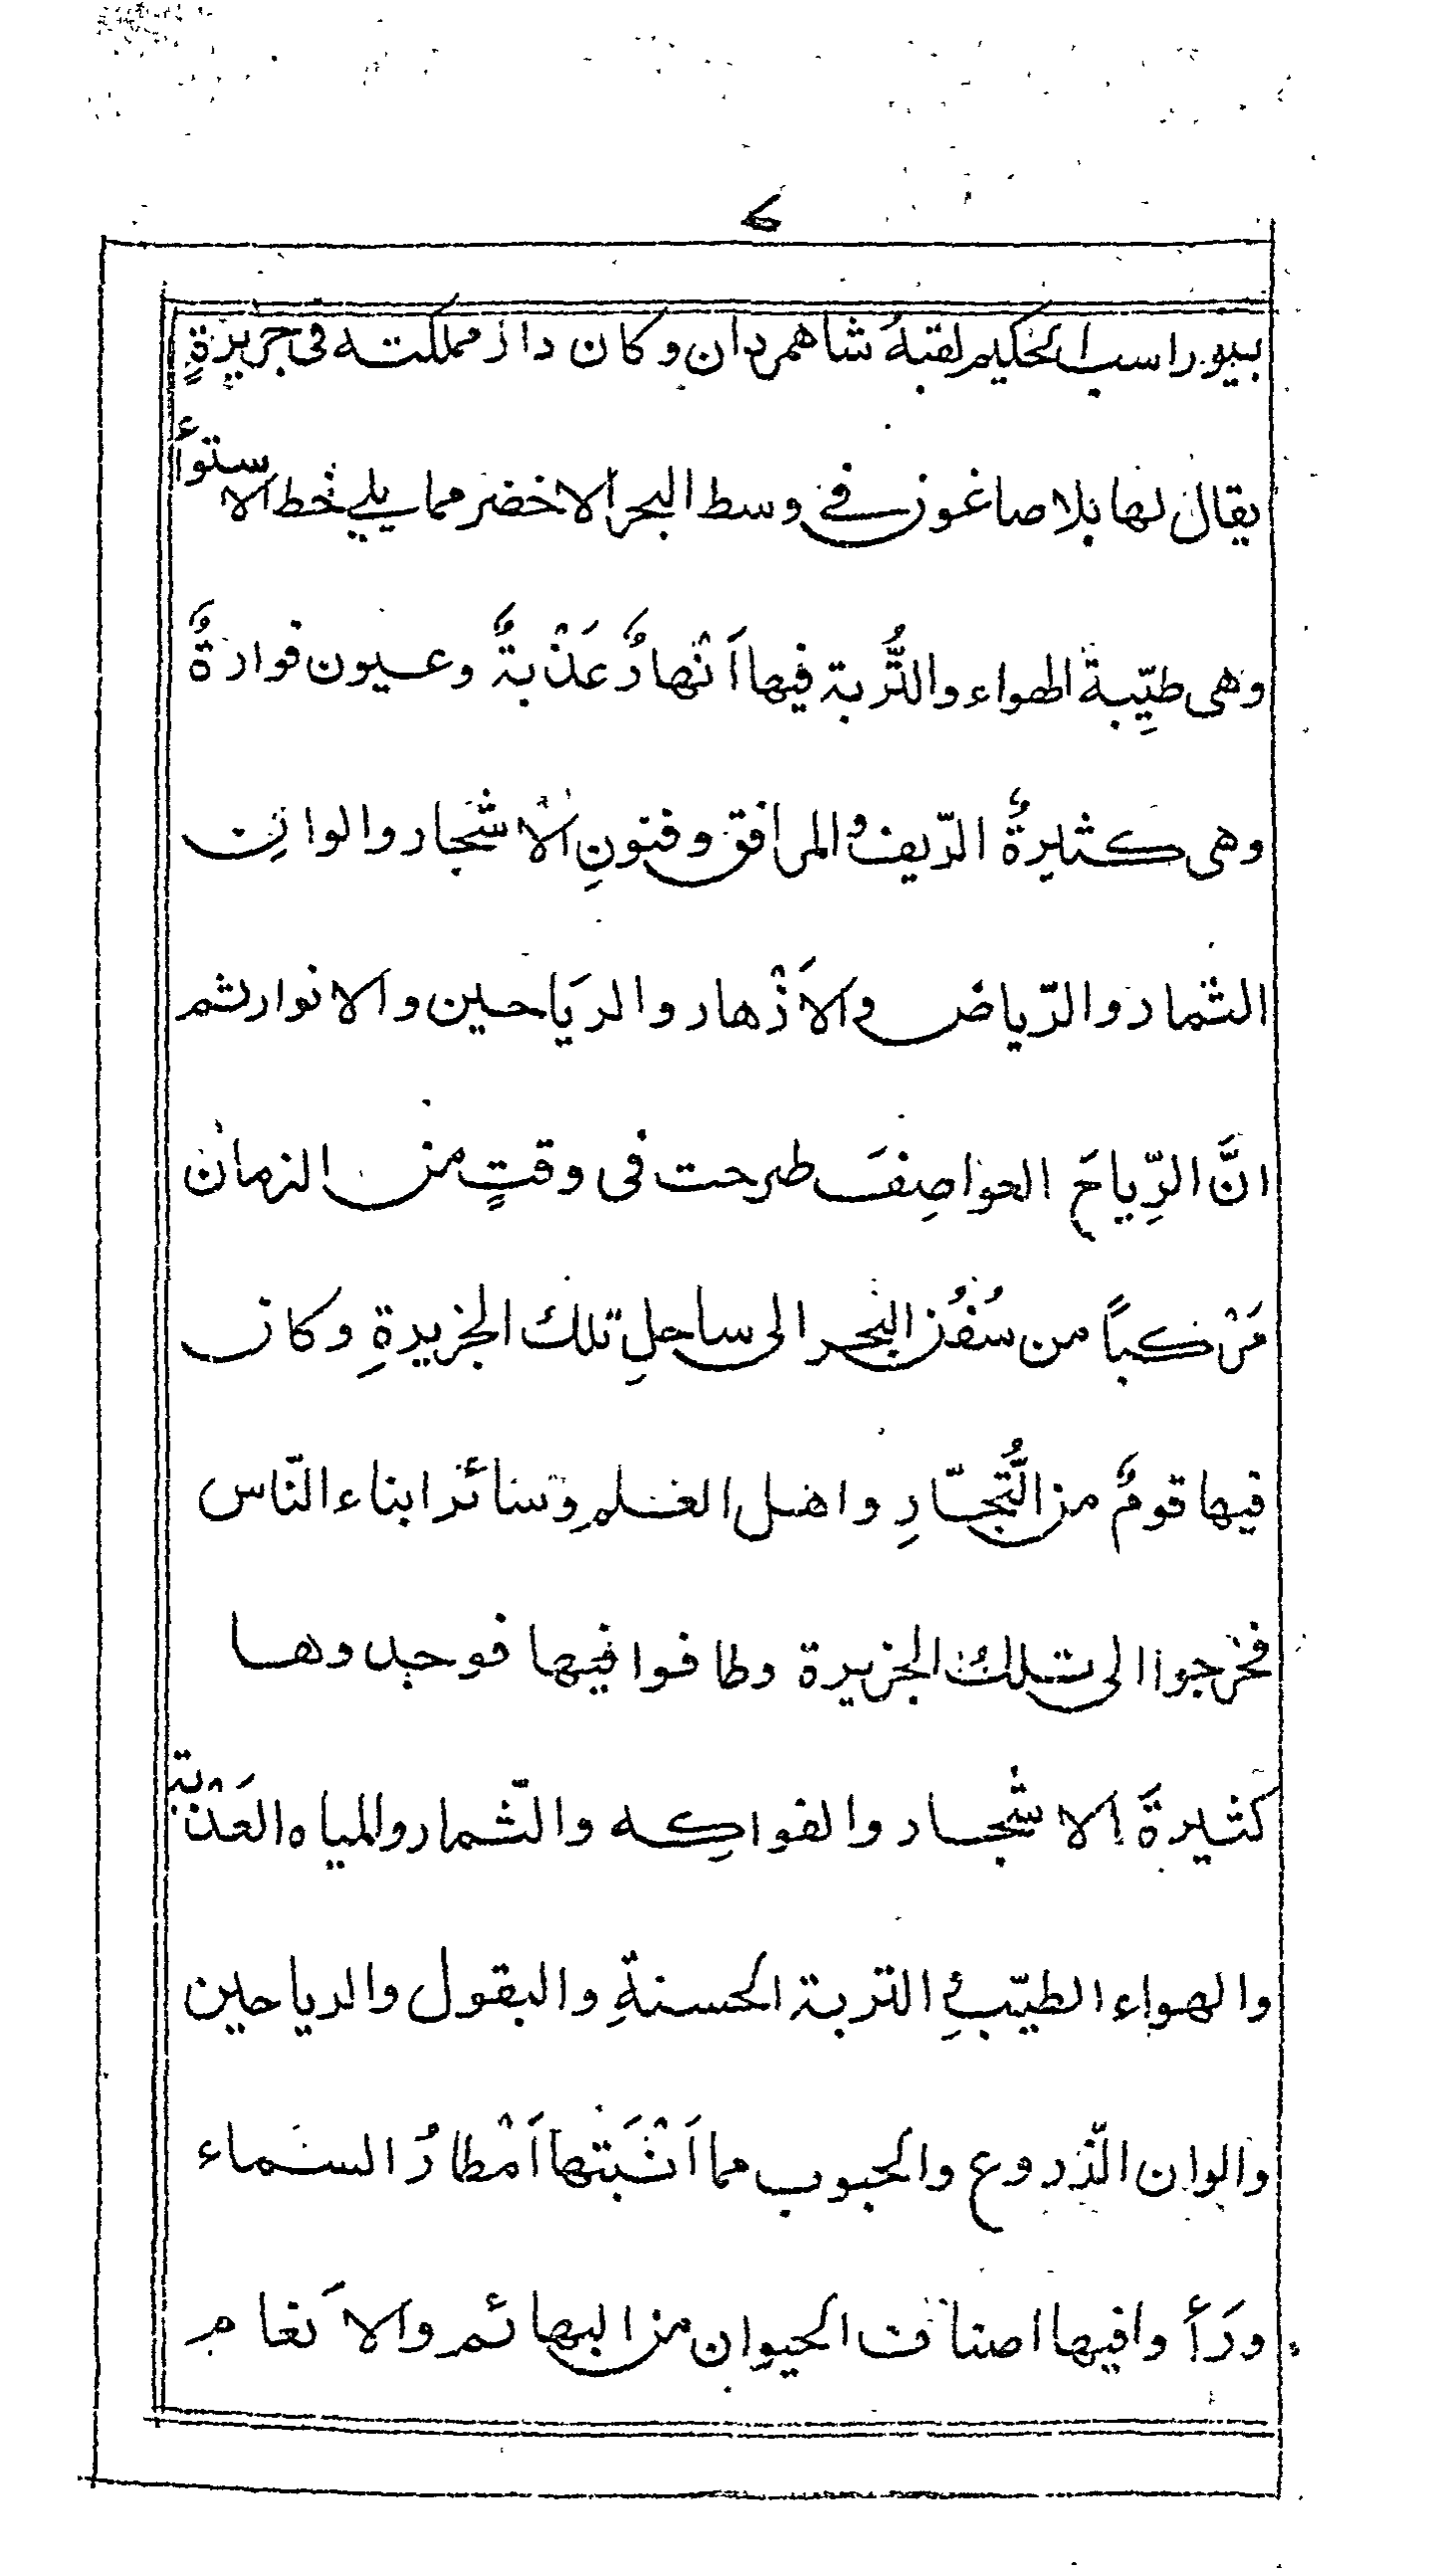 ۶
بيوراسب الحكيم لقبهُ شاهمردان وكان دار مملكته فى جزيرةٍ
يقال لها بلاصاغون في وسط البحر الاخضر مما يلي خط الاستوأء
وهى طيِّبة الهواء والتُّربة فيها اَنْهارٌ عَذْبةٌ وعيون فوارةٌ
وهى كثيرةٌ الرّيف والمرافق وفنونِ الاشجار والوان
الثمار والرّياض والاَزْهار والريَاحين والانوار ثم
انَّ الرِّياحَ العواصِفَ طرحت فى وقتٍ من الزمان
مَرْكباً من سُفُن البحر الى ساحلِ تلك الجزيرةِ وكان
فيها قومٌ من التُّجّارِ واهل العلمِ وسائر ابناء النّاس
فخرجوا الى تلك الجزيرة وطافوا فيها فوجدوها
كثيرةَ الاشجار والفواكِه والثّمار والمياه العَذْبة
والهواء الطيّبِ التربة الحسنةِ والبقول والرياحين
والوان الزّروع والحبوب مما اَنْبَتها اَمْطارُ السماء
ورَأَوا فيها اصناف الحيوان من البهائم والاَنعام